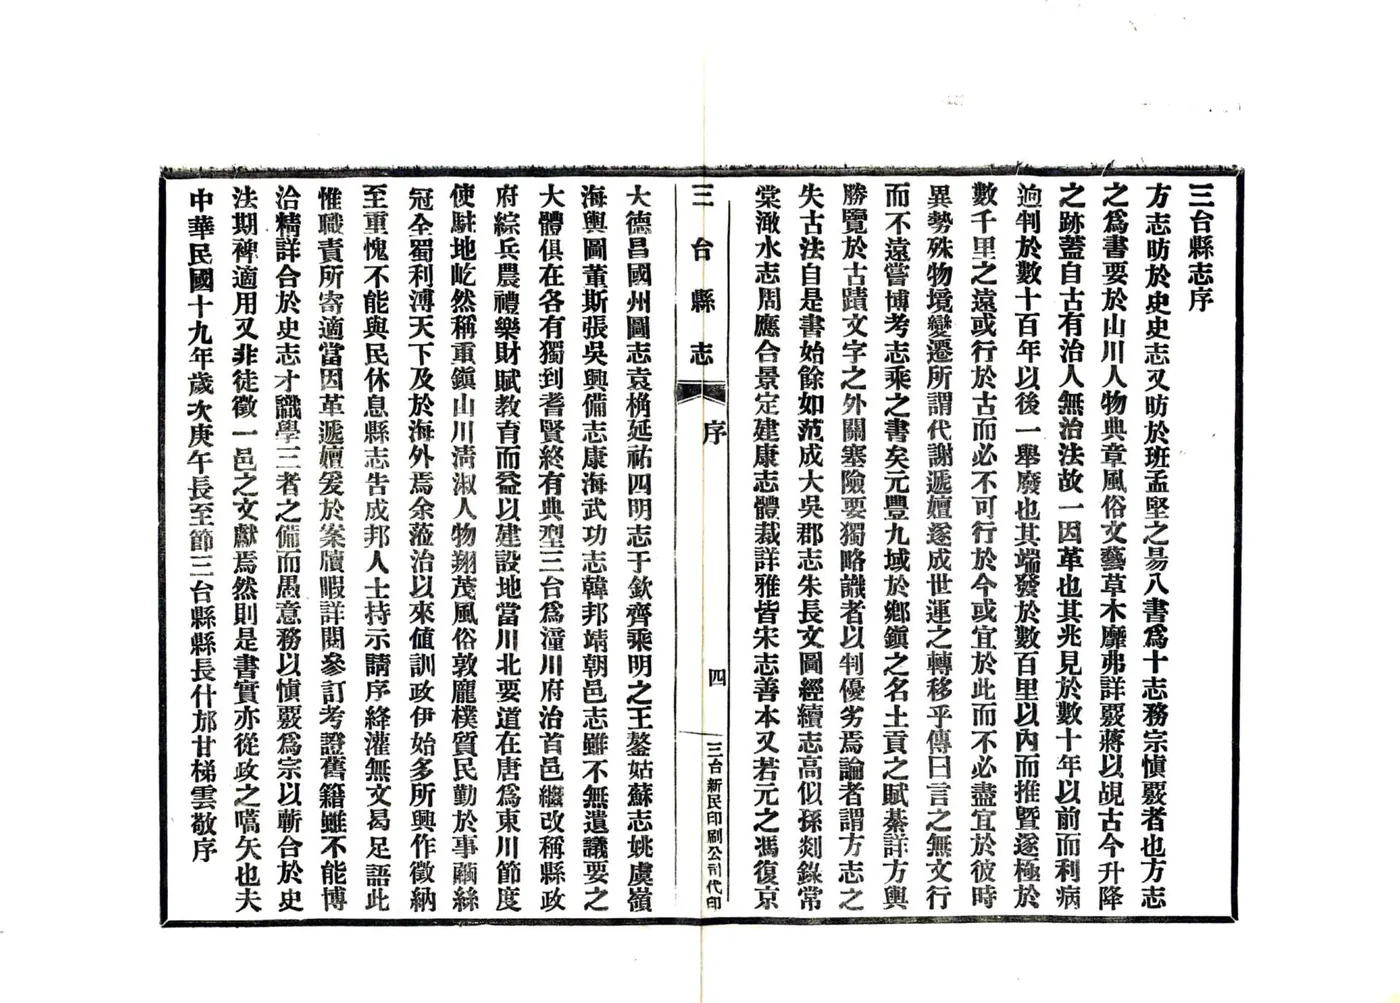 三台縣志序
方志昉於史史志又昉於班孟堅之易八書為十志務宗慎覈者也方志
之為書要於山川人物典章風俗文藝草木靡弗詳覈蔣以覘古今升降
之跡蓋自古有治人無治法故一因革也其兆見於數十年以前而利病
逈判於數十百年以後一舉廢也其端發於數百里以內而推暨遂極於
數千里之遠或行於古而必不可行於今或宜於此而不必盡宜於彼時
異勢殊物境變遷所謂代謝遞嬗遂成世運之轉移乎傳曰言之無文行
而不遠嘗博考志乘之書矣元豐九域於鄉鎮之名土貢之賦綦詳方輿
勝覽於古蹟文字之外關塞險要獨略識者以判優劣焉論者謂方志之
失古法自是書始餘如范成大吳郡志朱長文圖經續志高似孫剡錄常
棠澉水志周應合景定建康志體裁詳雅皆宋志善本又若元之馮復京
三台縣志
序
四
三台新民印刷公司代印
大德昌國州圖志袁桷延祐四明志于欽齊乘明之王鏊姑蘇志姚虞嶺
海輿圖董斯張吳興備志康海武功志韓邦靖朝邑志雖不無遺議要之
大體俱在各有獨到耆賢終有典型三台為潼川府治首邑繼改稱縣政
府綜兵農禮樂財賦教育而益以建設地當川北要道在唐為東川節度
使駐地屹然稱重鎮山川清淑人物翔茂風俗敦龐樸質民勤於事繭絲
冠全蜀利溥天下及於海外焉余蒞治以來值訓政伊始多所興作徵納
至重愧不能與民休息縣志告成邦人士持示請序絳灌無文曷足語此
惟職責所寄適當因革遞嬗爰於案牘暇詳閱參訂考證舊籍雖不能博
洽精詳合於史志才識學三者之備而愚意務以慎覈為宗以蘄合於史
法期裨適用又非徒徵一邑之文獻焉然則是書實亦從政之嚆矢也夫
中華民國十九年歲次庚午長至節三台縣縣長什邡甘梯雲敬序